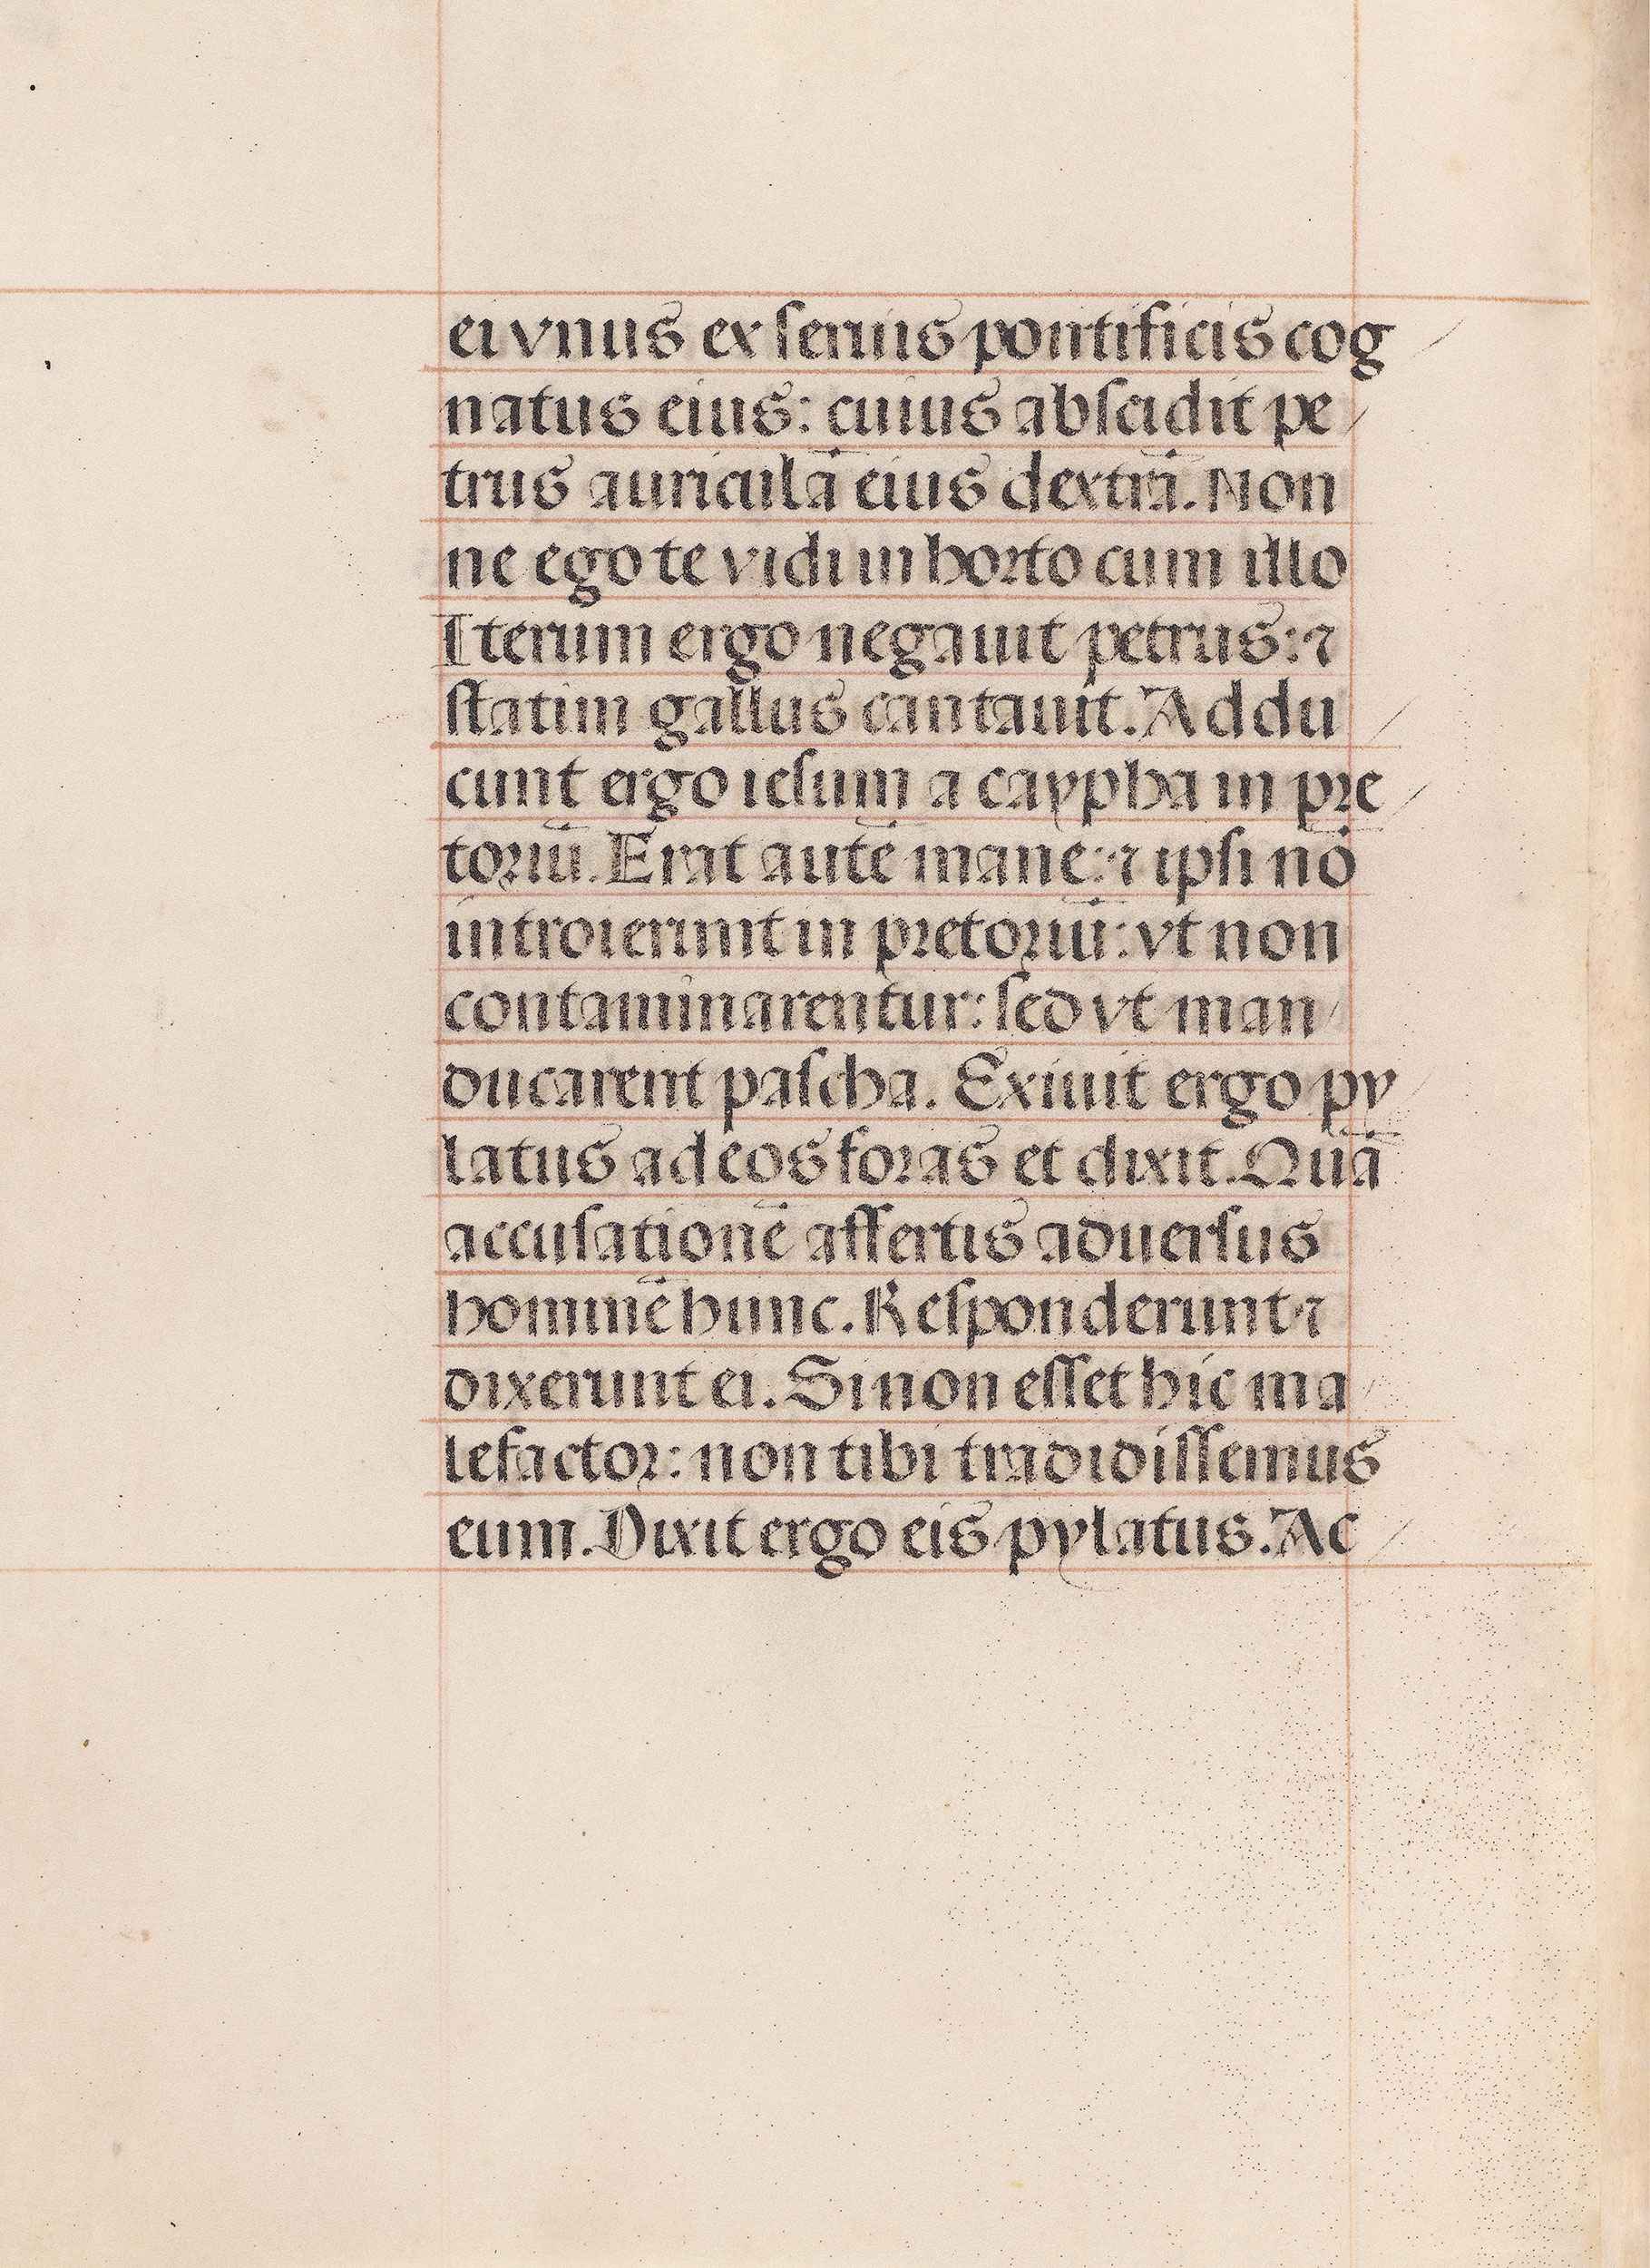 ei vnus ex seruis pontificis cog
natus eius: cuius abscidit pe
trus auriculā eius dextrā. Non
ne ego te vidi in horto cum illo
Iterum ergo negauit petrus: ⁊
statim gallus cantauit. Addu
cunt ergo iesum a caypha in pre
toriū. Erat autē mane: ⁊ ipsi nō
introierunt in pretoriū: vt non
contaminarentur: sed vt man
ducarent pascha. Exiuit ergo py
latus ad eos foras et dixit. Quā
accusationē affertis aduersus
hominē hunc. Responderunt ⁊
dixerunt ei. Si non esset hic ma
lefactor: non tibi tradidissemus
eum. Dixit ergo eis pylatus. Ac